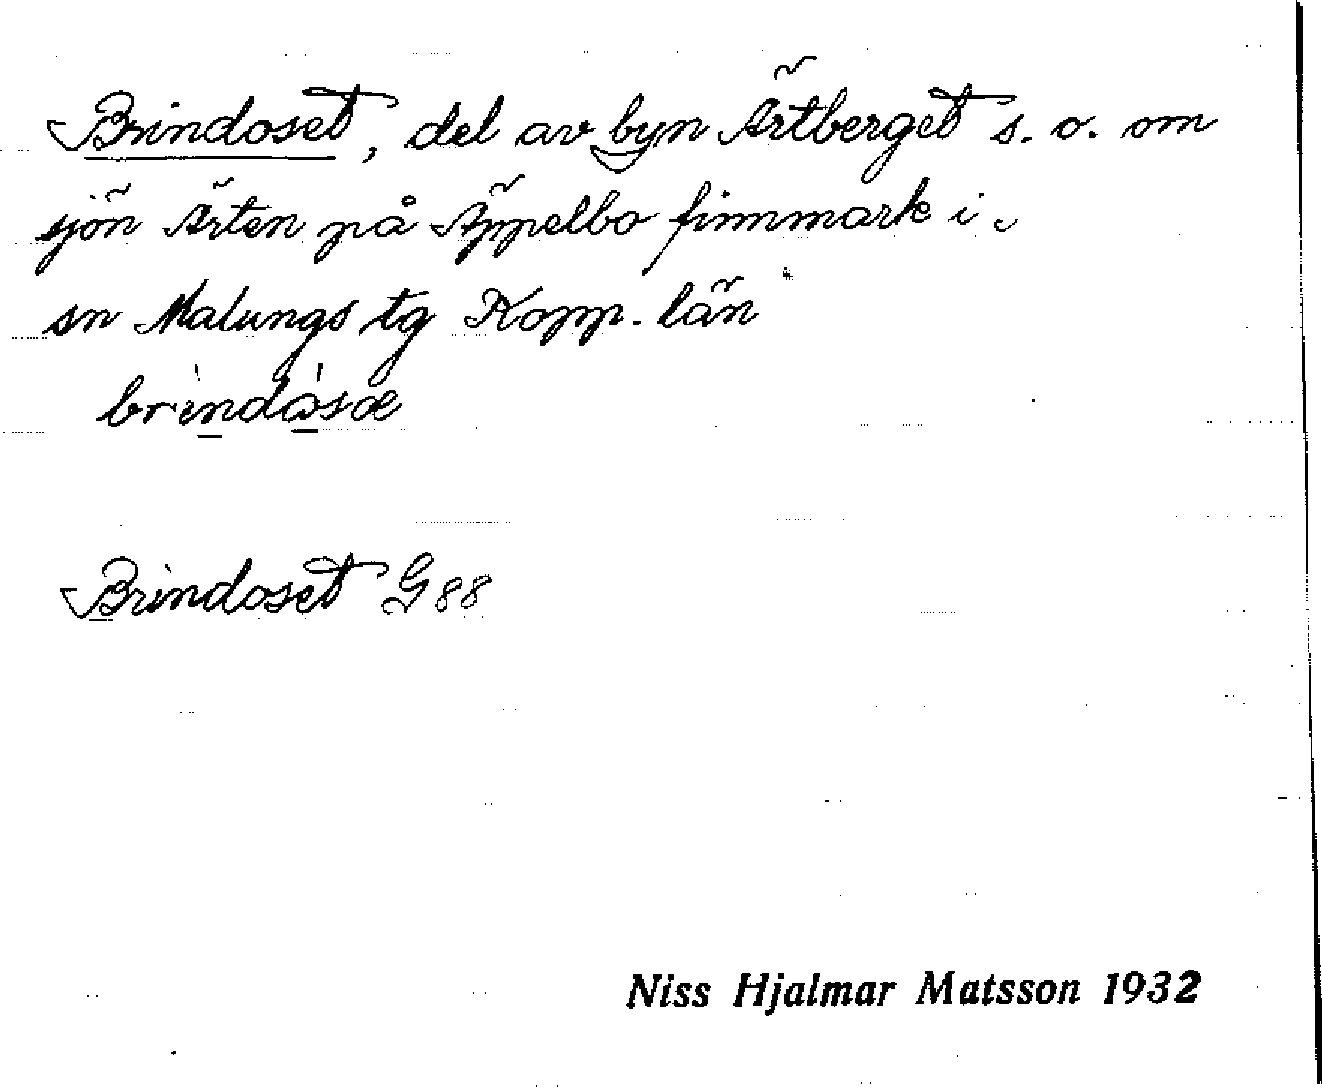 Brindoset, del av byn Ärtberget s. o. om
sjön Ärten på Äppelbo finnmark i
sn Malungs tg Kopp. län
brindåsæ
Brindoset G 88
Niss Hjalmar Matsson 1932